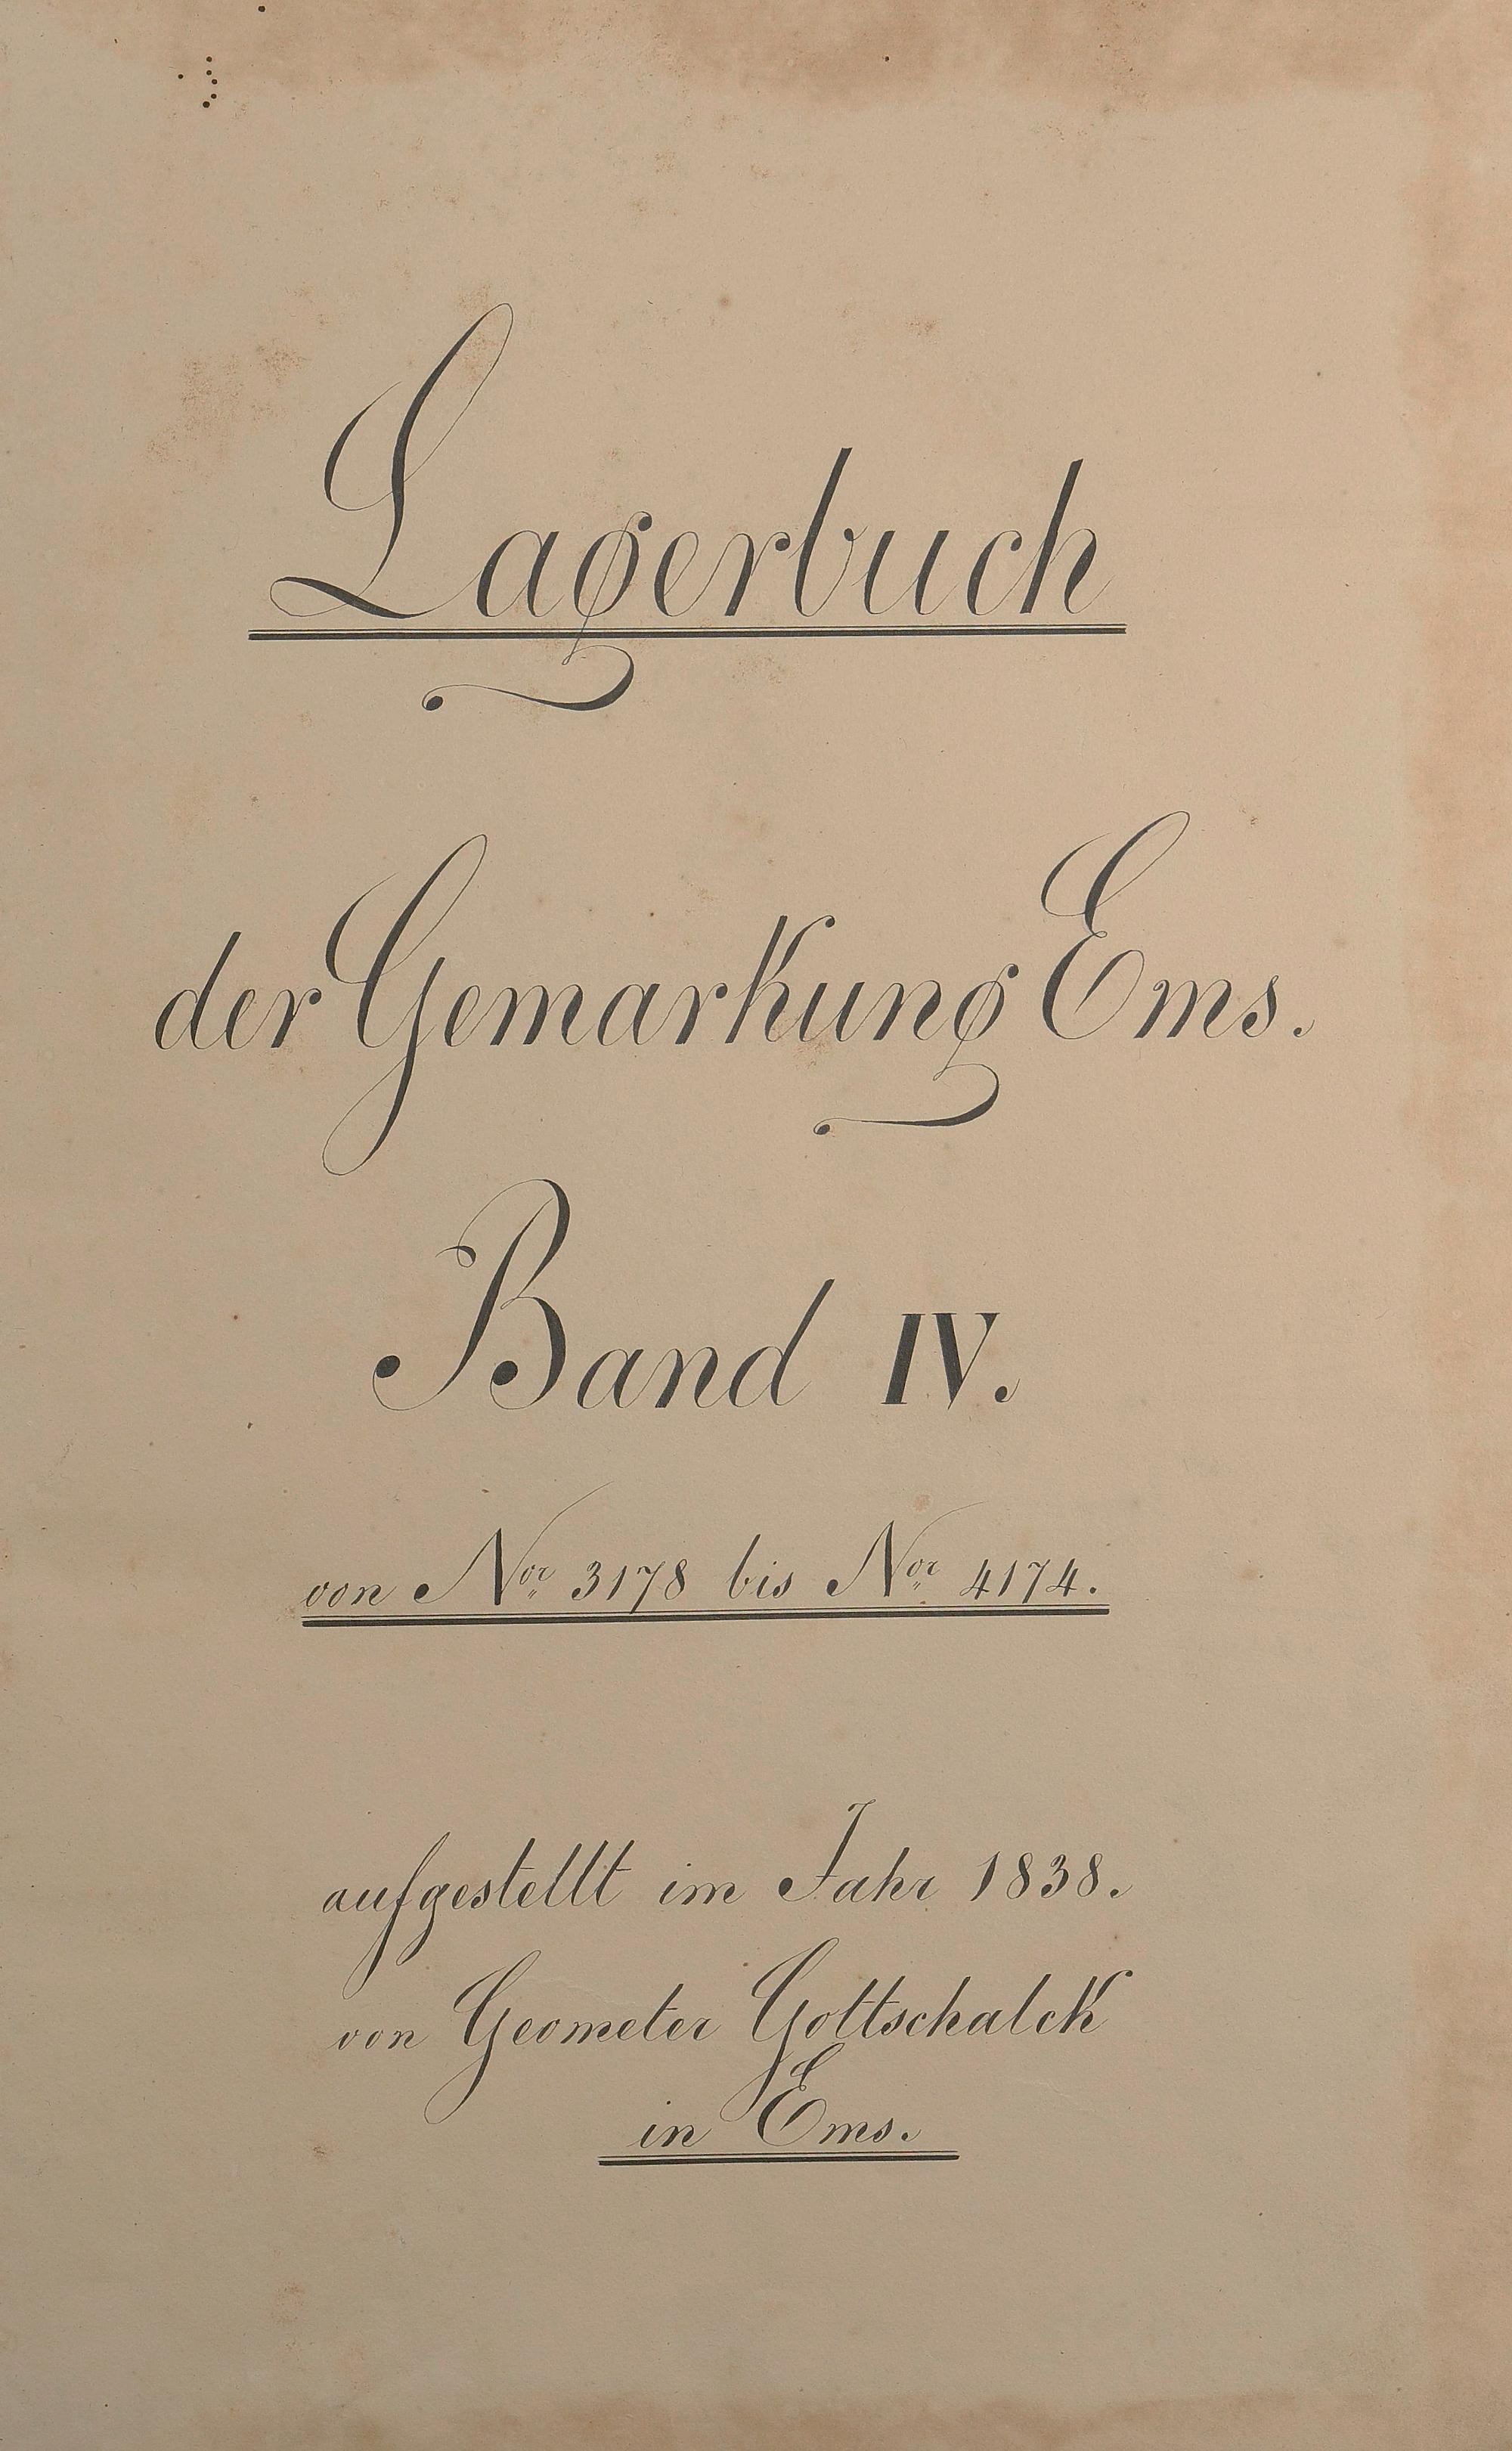 Lagerbuch
der Gemarkung Ems.
Band IV.
von Nor 3178 bis Nor 4174.
aufgestellt im Jahr 1838.
von Geometer Gottschalck
in Ems.